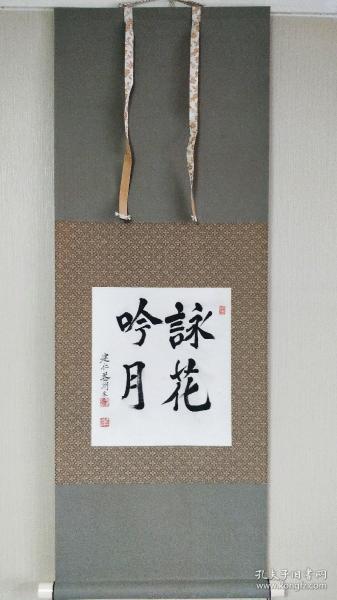 詠花
吟月
建仁
孔夫子旧书网
www.kongfz.com